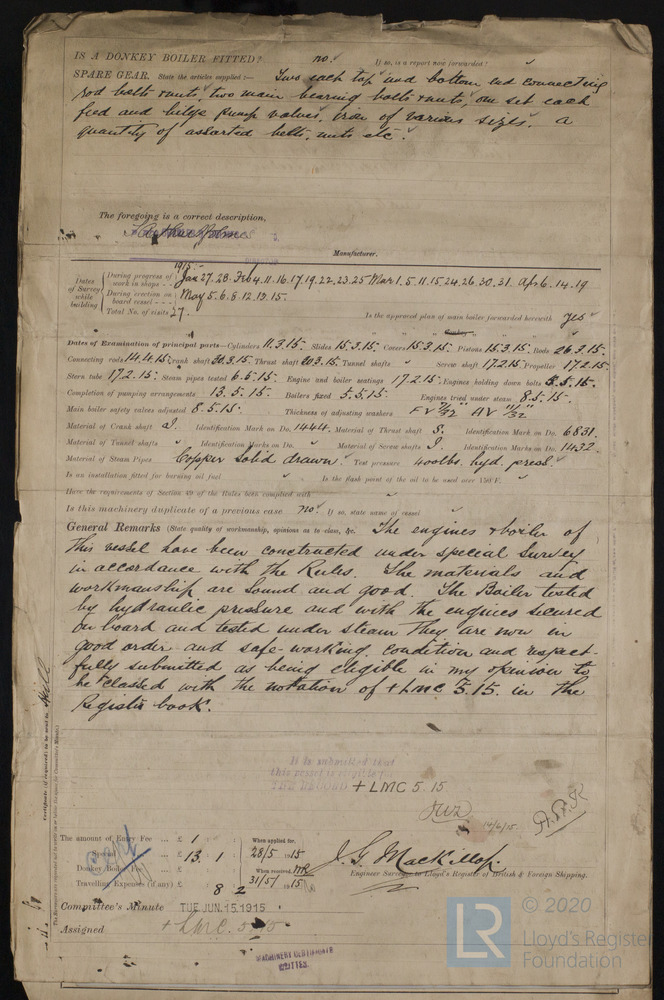 IS A DONKEY BOILER FITTED? no. If so, is a report now forwarded?
SPARE GEAR. State the articles supplied:— Two each top and bottom end connecting
rod bolts & nuts, two main bearing bolts & nuts, one set each
feed and bilge pump valves, iron of various sizes, a
quantity of assorted bolts, nuts etc.
The foregoing is a correct description,
Manufacturer.
1915
Dates of Survey while building
During progress of work in shops - - Jan 27. 28. Feb 4. 11. 16. 17. 19. 22. 23. 25 Mar 1. 5. 11. 15. 24. 26. 30. 31. Apr 6. 14. 19
During erection on board vessel - - - May 5. 6. 8. 12. 13. 15.
Total No. of visits 27.
Is the approved plan of main boiler forwarded herewith yes
Dates of Examination of principal parts—Cylinders 11.3.15. Slides 15.3.15. Covers 15.3.15. Pistons 15.3.15. Rods 26.3.15.
Connecting rods 14.4.15. Crank shaft 30.3.15. Thrust shaft 20.3.15. Tunnel shafts " Screw shaft 17.2.15. Propeller 17.2.15
Stern tube 17.2.15. Steam pipes tested 6.5.15. Engine and boiler seatings 17.2.15. Engines holding down bolts 5.5.15.
Completion of pumping arrangements 13.5.15. Boilers fixed 5.5.15. Engines tried under steam 8.5.15.
Main boiler safety valves adjusted 8.5.15. Thickness of adjusting washers F V 7/32" A V 11/32"
Material of Crank shaft Identification Mark on Do. 1444. Material of Thrust shaft S. Identification Mark on Do. 6831.
Material of Tunnel shafts " Identification Marks on Do. " Material of Screw shafts I. Identification Marks on Do. 1432.
Material of Steam Pipes Copper Solid drawn. Test pressure 400lbs. hyd. press.
Is an installation fitted for burning oil fuel " Is the flash point of the oil to be used over 150°F.
Have the requirements of Section 49 of the Rules been complied with "
Is this machinery duplicate of a previous case no. If so, state name of vessel "
General Remarks (State quality of workmanship, opinions as to class, &c. The engines & boiler of
this vessel have been constructed under special Survey
in accordance with the Rules. The materials and
workmanship are sound and good. The Boiler tested
by hydraulic pressure and with the engines secured
on board and tested under steam They are now in
good order and safe working condition and respect-
fully submitted as being eligible in my opinion to
be classed with the notation of + LMC 5.15. in the
Register book.
It is submitted that
this vessel is eligible for
THE RECORD + LMC 5.15
The amount of Entry Fee ... £ 1 When applied for,
Special ... £ 13. 1 28/5 1915
Donkey Boiler Fee ... £ When received,
Travelling Expenses (if any) £ 8 2 31/5/1915
J. G. Mackillop.
Engineer Surveyor to Lloyd's Register of British & Foreign Shipping.
Committee's Minute TUE. JUN. 15. 1915
Assigned + LMC. 5.15
MACHINERY CERTIFICATE
WRITTEN.
Certificate (if required) to be sent to Hull
LR © 2020
Lloyd's Register
Foundation